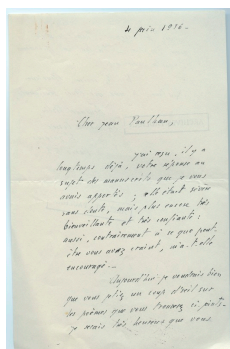 4 juin 1936.
Cher Jean Paulhan,
j'ai reçu, il y a
longtemps déjà, votre réponse au
sujet des manuscrits que je vous
avais apportés ; elle était sévère
sans doute, mais plus encore très
bienveillante et très confiante :
aussi, contrairement à ce que peut-
être vous avez craint, m'a-t-elle
encouragé. -
Aujourd'hui je voudrais bien
que vous jetiez un coup d'œil sur
les poèmes que vous trouverez ci-joints.-
Je serais très heureux que vous